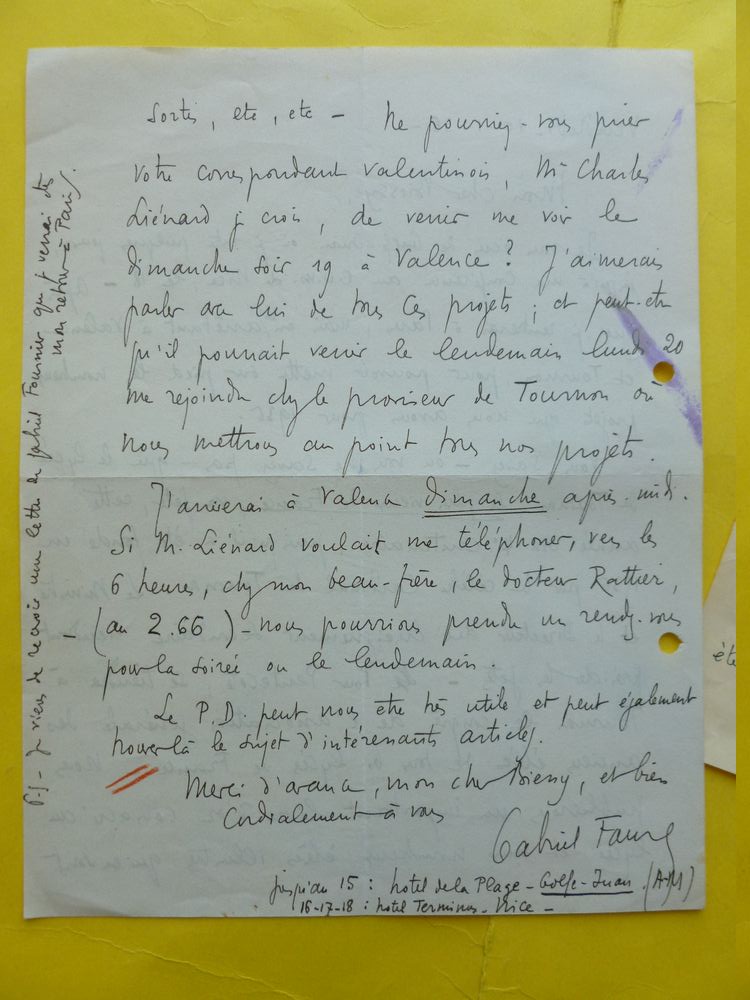 Sortis, etc, etc – Ne pourriez-vous prier
votre correspondant valentinois, Mr Charles
Liénard je crois, de venir me voir le
dimanche soir 19 à Valence ? J'aimerais
parler avec lui de tous ces projets ; et peut-être
qu'il pourrait venir le lendemain lundi 20
me rejoindre chez le proviseur de Tournon où
nous mettrons au point tous nos projets.
J'arriverai à Valence dimanche après-midi.
Si M. Liénard voulait me téléphoner, vers les
6 heures, chez mon beau-frère, le docteur Rattier,
– (au 2.66) – nous pourrions prendre un rendez-vous
pour la soirée ou le lendemain.
Le P.D. peut nous être très utile et peut également
trouver là le sujet d'intéressants articles.
Merci d'avance, mon cher, et bien
Cordialement à vous
Gabriel Faure
jusqu'au 15 : hotel de la Plage – Golfe-Juan (A-M)
16-17-18 : hotel Terminus – Nice –
P.S – Je viens de recevoir une lettre de Gabriel Fournier que je verrai dès
mon retour à Paris.
éte